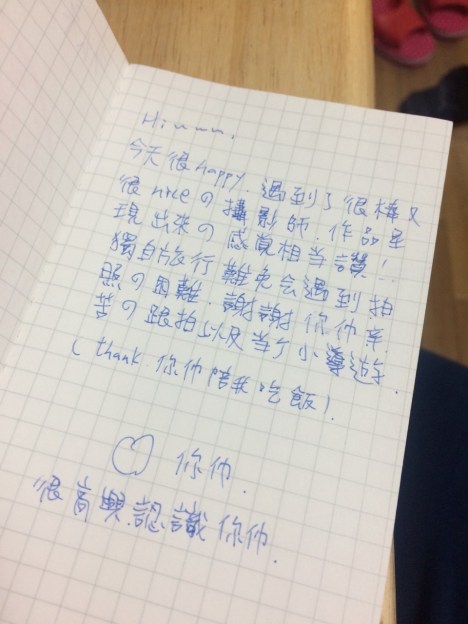 Hiuuu.
今天很happy.遇到了很棒又
很nice の攝影師.作品呈
現出來の感覺相當讚!
獨自旅行難免会遇到拍
照の困難.謝謝你们辛
苦の跟拍以及当了小導遊.
(thank 你们陪我吃飯)
你们.
很高興認識你们.